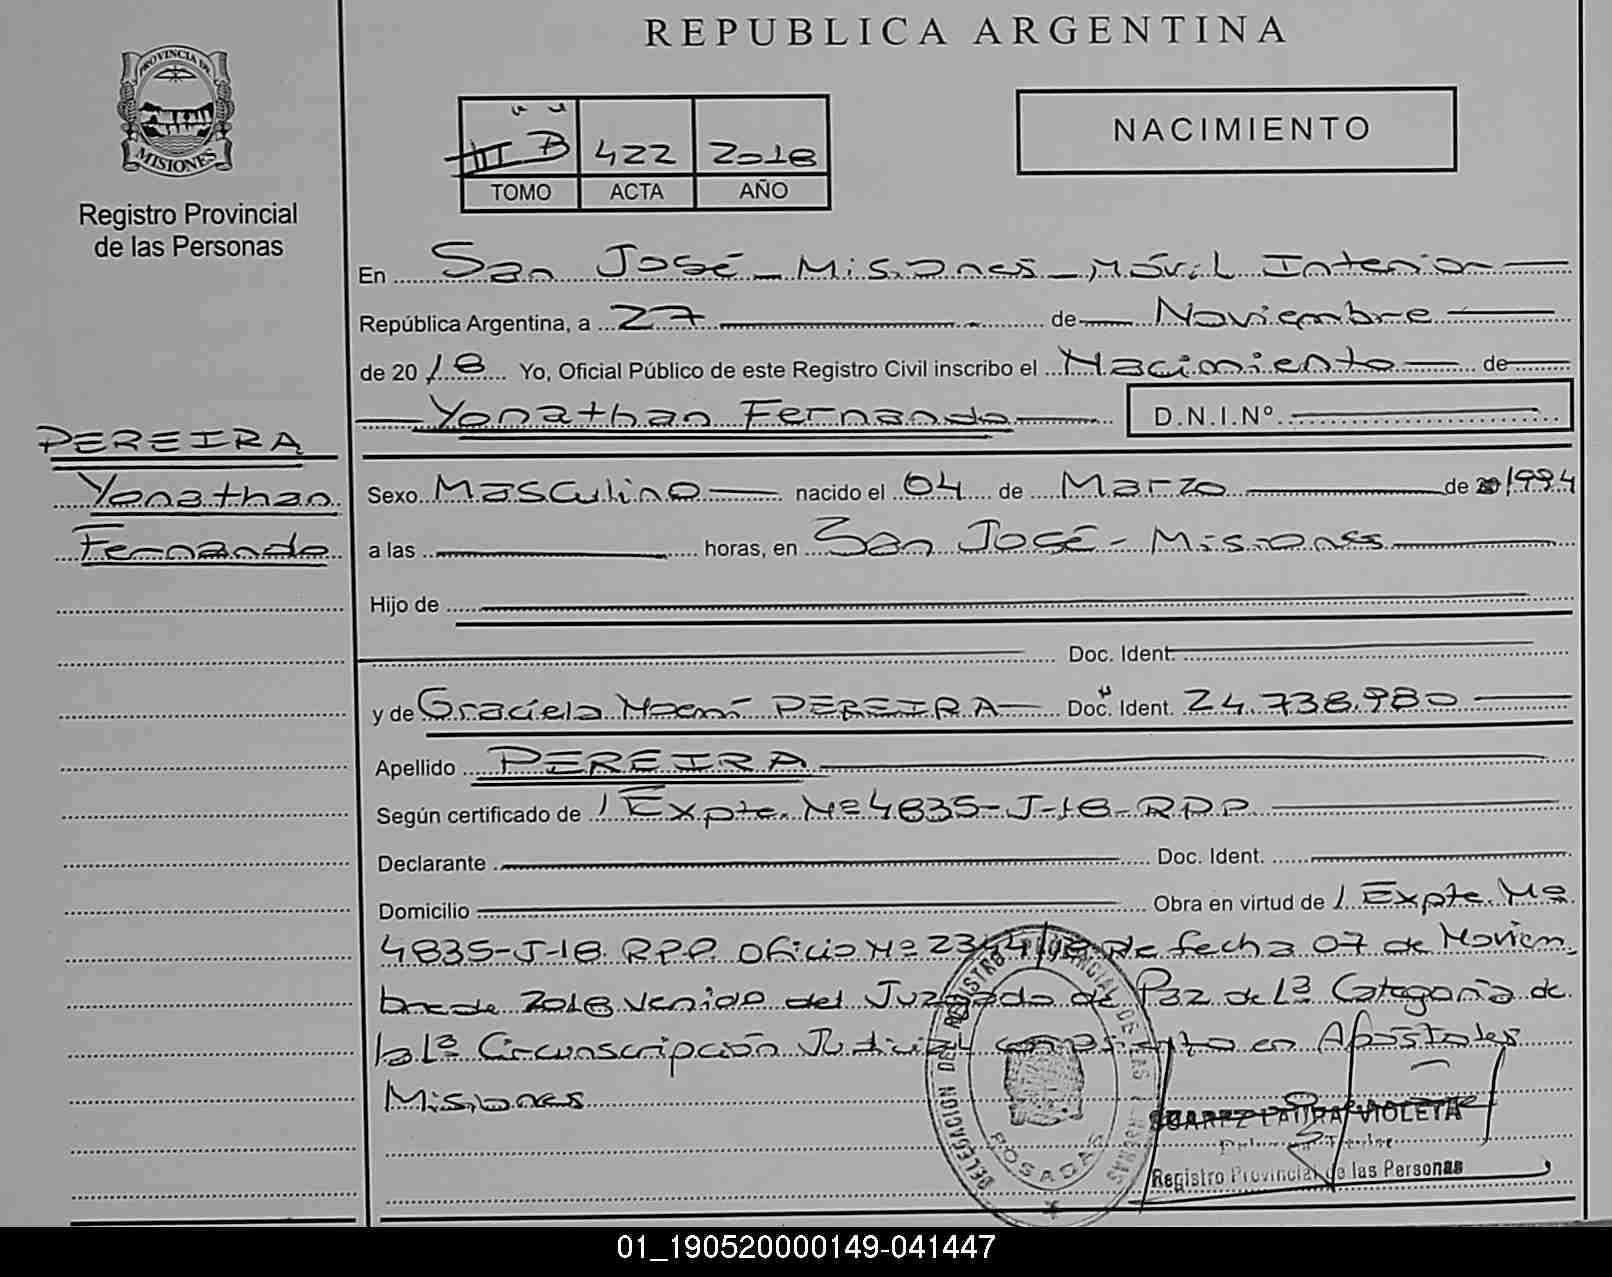 REPUBLICA ARGENTINA
PROVINCIA DE
MISIONES
Registro Provincial
de las Personas
NACIMIENTO
III B 422 2018
TOMO ACTA AÑO
En San José - Misiones - Móvil Interior
República Argentina, a 27 de Noviembre
de 2018 Yo, Oficial Público de este Registro Civil inscribo el Nacimiento de
Yonathan Fernando D.N.I.Nº
PEREIRA
Yonathan
Fernando
Sexo Masculino nacido el 04 de Marzo de 1994
a las horas, en San José - Misiones
Hijo de
Doc. Ident.
y de Graciela Noemí PEREIRA Doc. Ident. 24.738.980
Apellido PEREIRA
Según certificado de / Expte. Nº 4835-J-18-RPP.
Declarante Doc. Ident.
Domicilio Obra en virtud de / Expte. Nº
4835-J-18. RPP. Oficio Nº 2344/18 de fecha 07 de Noviem
bre de 2018 venido del Juzgado de Paz de 1ª Categoría de
la 1ª Circunscripción Judicial con asiento en Apóstoles
Misiones
DELEGACION DEL REGISTRO PROVINCIAL DE LAS PERSONAS
POSADAS
SUAREZ LAURA VIOLETA
Registro Provincial de las Personas
01_190520000149-041447